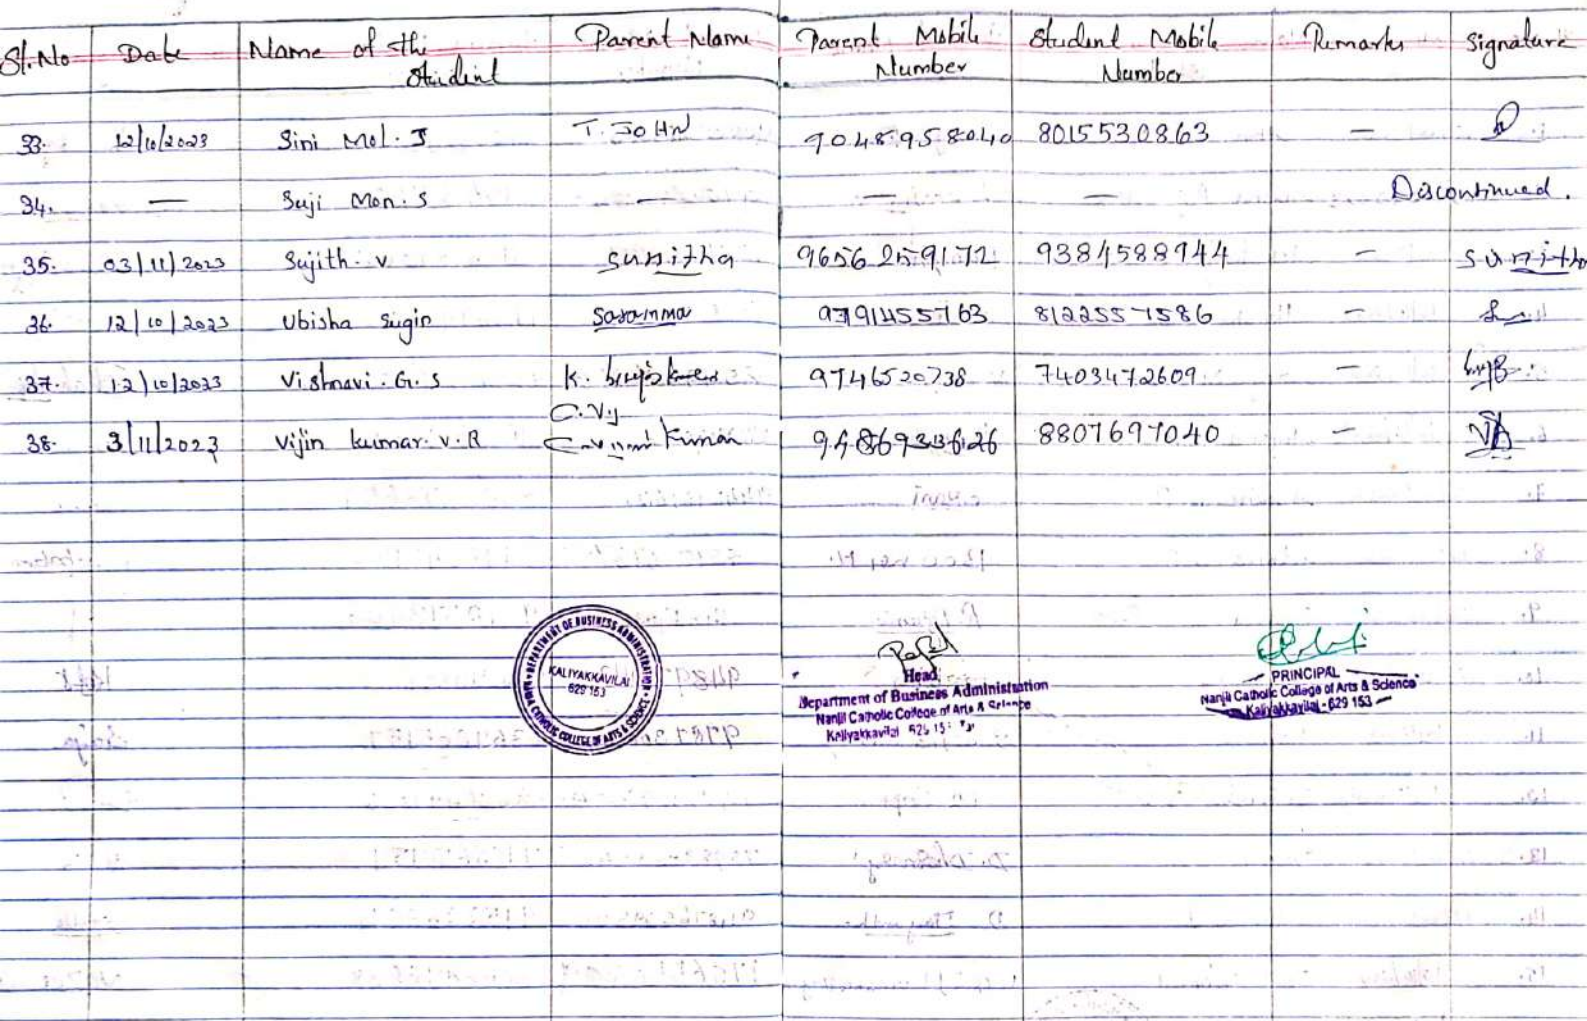 Sl.No Date Name of the Student Parent Name Parent Mobile Number Student Mobile Number Remarks Signature
33. 12/10/2023 Sini Mol. J T. JOHN 9048958040 8015530863 —
34. — Suji Mon. S — — — Discontinued.
35. 03/11/2023 Sujith. V Sunitha 9656259172 9384588944 — Sunitha
36. 12/10/2023 Ubisha Sugin Saranma 8122557586 —
37. 12/10/2023 Vishnavi. G. S K. 9746520738 7403472609 —
C.V.J
38. 3/11/2023 Vijin kumar. V. R Kumar 8807697040 —
DEPARTMENT OF BUSINESS ADMINISTRATION
KALIYAKKAVILAI
629 153
CATHOLIC COLLEGE OF ARTS & SCIENCE
Head
Department of Business Administration
Nanjil Catholic College of Arts & Science
Kaliyakkavilai
PRINCIPAL
Nanjil Catholic College of Arts & Science
Kaliyakkavilai - 629 153